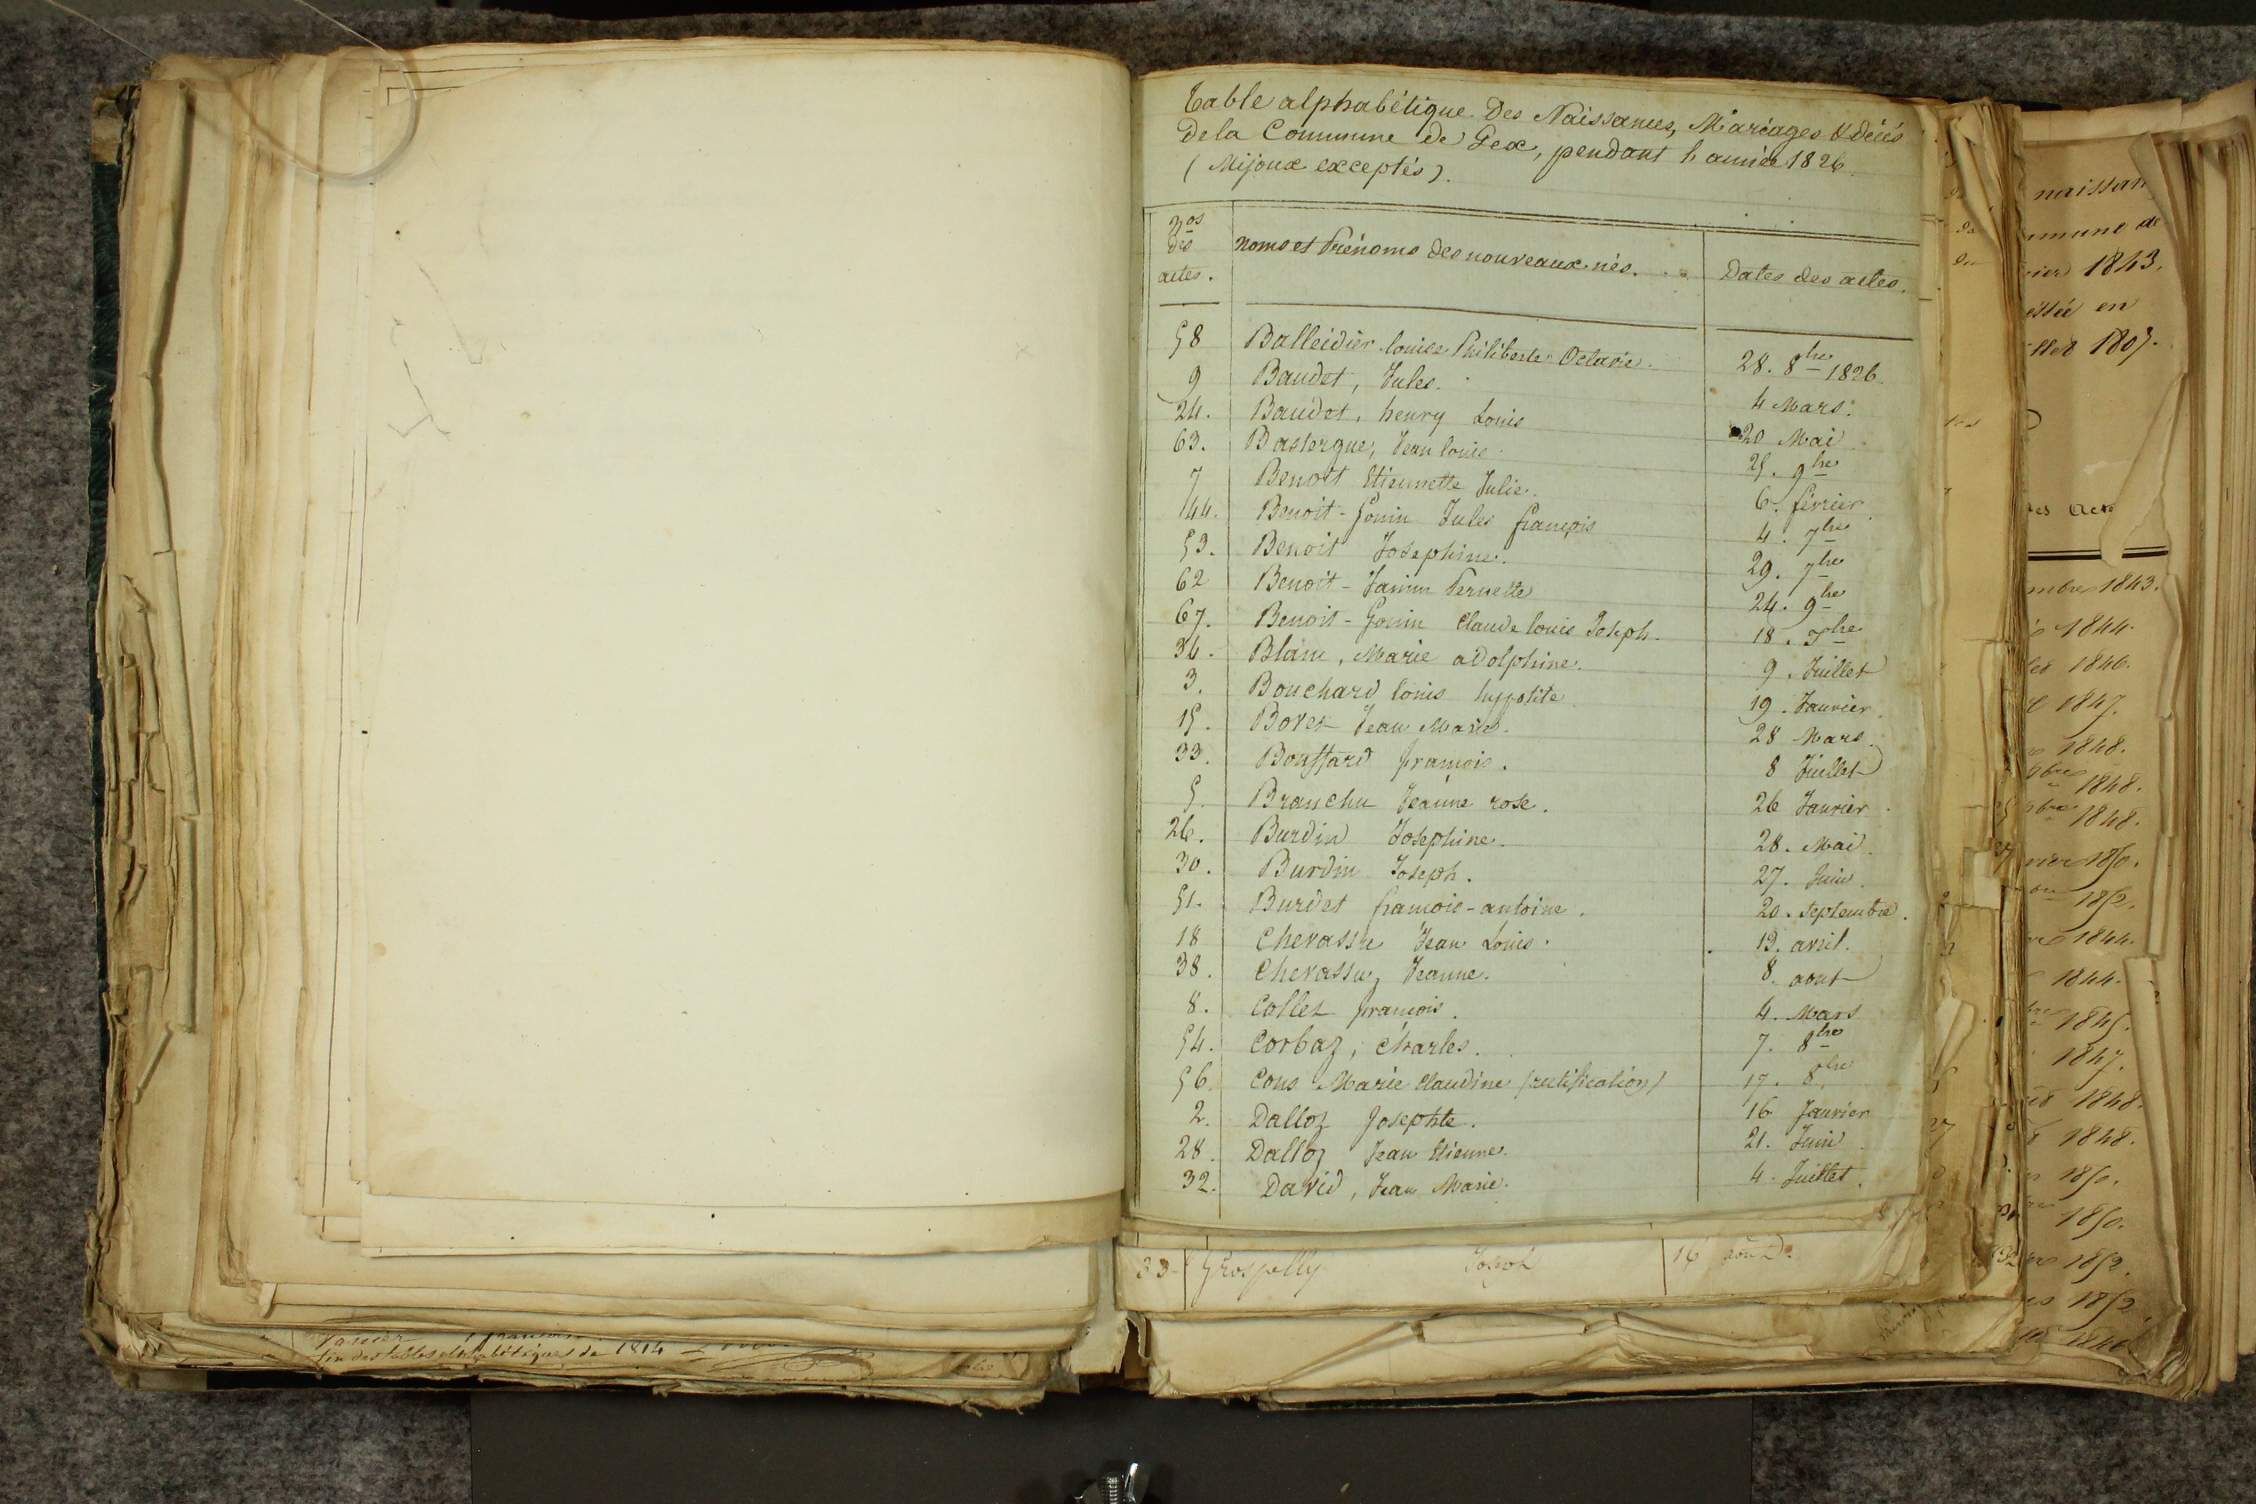 Table alphabétique Des Naissances, Mariages & décès
De la Commune de Gex, pendant l'année 1826.
(Mijoux exceptés).
nos des actes. Noms et Prénoms des nouveaux nés. Dates des actes.
58 Balleidier louise Philiberte Octavie. 28. 8bre 1826.
9 Baudet, Jules. 4 Mars.
24. Baudet, henry Louis 20 Mai
63. Bastergue, Jean louis. 25. 9bre
7 Benoit Etiennette Julie. 6. février.
44. Benoit-Gonin Jules françois 4. 7bre
53. Benoit Josephine. 29. 7bre
62 Benoit-Janin Pernette 24. 9bre
67. Benoit-Gonin Claude louis Joseph. 18. Xbre
34. Blanc, Marie adolphine. 9. Juillet
3. Bouchard louis hyppolite 19. Janvier.
15. Bovet Jean Marie. 28 Mars.
33. Bouffard françois. 8 Juillet
5. Branchu Jeanne rose. 26 Janvier.
26. Burdin Josephine. 28. Mai.
30. Burdin Joseph. 27. Juin.
51. Burdet françois-antoine. 20. septembre.
18 Chevassu Jean Louis. 13. avril.
38. Chevassu, Jeanne. 8. aout
8. Collet françois. 4. Mars
54. Corbaz, Charles. 7. 8bre
56. Cons Marie Claudine (rectification) 17. 8bre
2. Dalloz Josephte. 16 Janvier
28. Dalloz Jean Etienne. 21. Juin
32. David, Jean Marie. 4. Juillet.
33 Grospelly Joseph 16
fin des tables alphabétiques de 1814
naissan
1843.
en
mbre 1843.
1844.
1846.
1847.
1848.
9bre 1848.
1848.
1850.
1852.
1844.
1844.
1845.
1847.
1848.
1848.
1850.
1850.
1852.
1852
1846